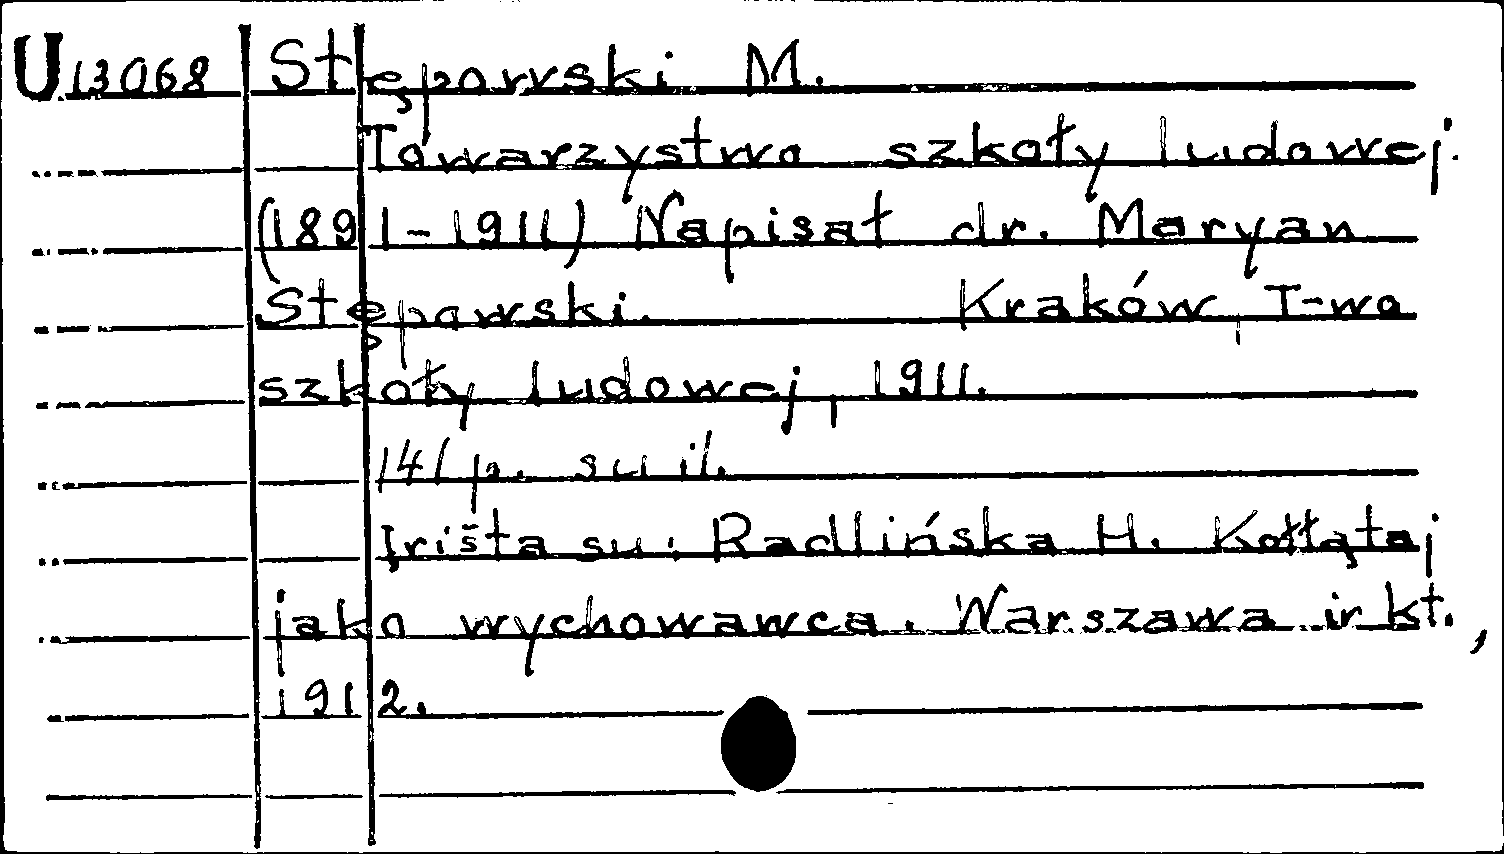 U13068 Stępowski M.
Towarzystwo szkoły ludowej.
(1891-1911) Napisał dr. Maryan
Stępowski. Kraków, T-wo
szkoły ludowej, 1911.
141 p. su il.
Įrišta su: Radlińska H. Kołłątaj
jako wychowawca. Warszawa ir kt.,
1912.